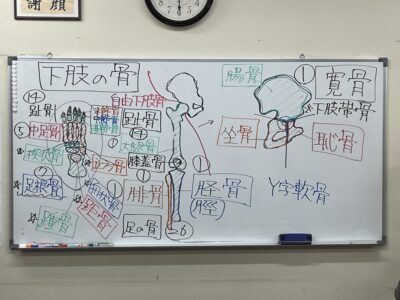 謝顔
下肢の骨
⑭
趾骨
⑤
中足骨
楔状骨
⑦
足根骨
踵骨
距骨
舟状骨
立方骨
自由下肢骨
趾骨
⑭
大腿骨
膝蓋骨
①
①
腓骨
足の骨
=26
①
脛骨
(脛)
腸骨
①
寛骨
下肢帯・骨
坐骨
恥骨
Y字軟骨